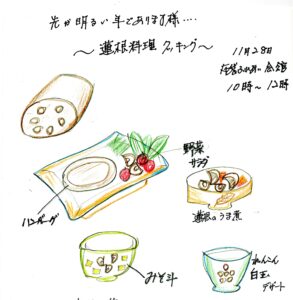 先が明るい年であります様‥‥
～蓮根料理クッキング～
11月28日
会館
10時～12時
野菜
サラダ
ハンバーグ
蓮根のうま煮
みそ汁
れんこん
白玉
デザート